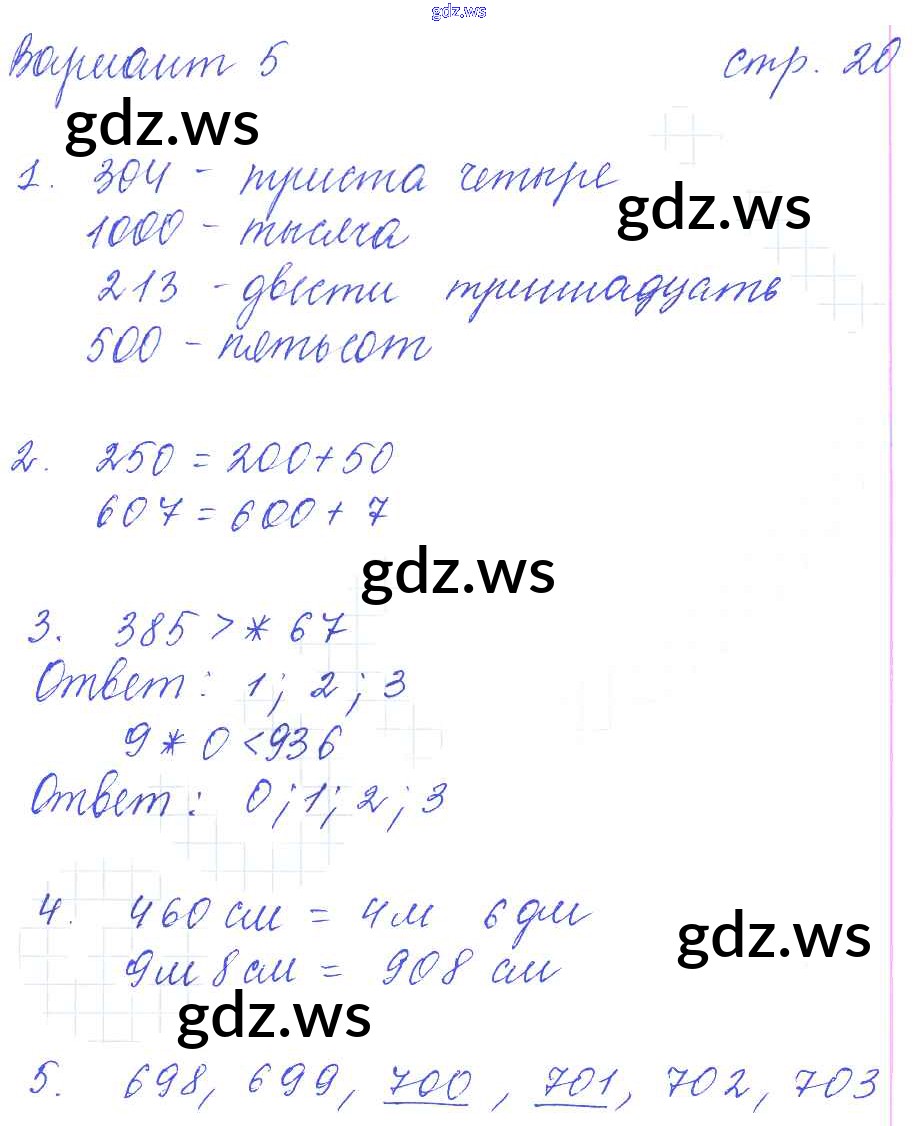 gdz.ws
Вариант 5 стр. 20
gdz.ws
1. 304 - триста четыре
gdz.ws
1000 - тысяча
213 - двести тринадцать
500 - пятьсот
2. 250 = 200 + 50
607 = 600 + 7
gdz.ws
3. 385 > * 67
Ответ: 1; 2; 3
9 * 0 < 936
Ответ: 0; 1; 2; 3
4. 460 см = 4 м 6 дм
gdz.ws
9 м 8 см = 908 см
gdz.ws
5. 698, 699, 700, 701, 702, 703